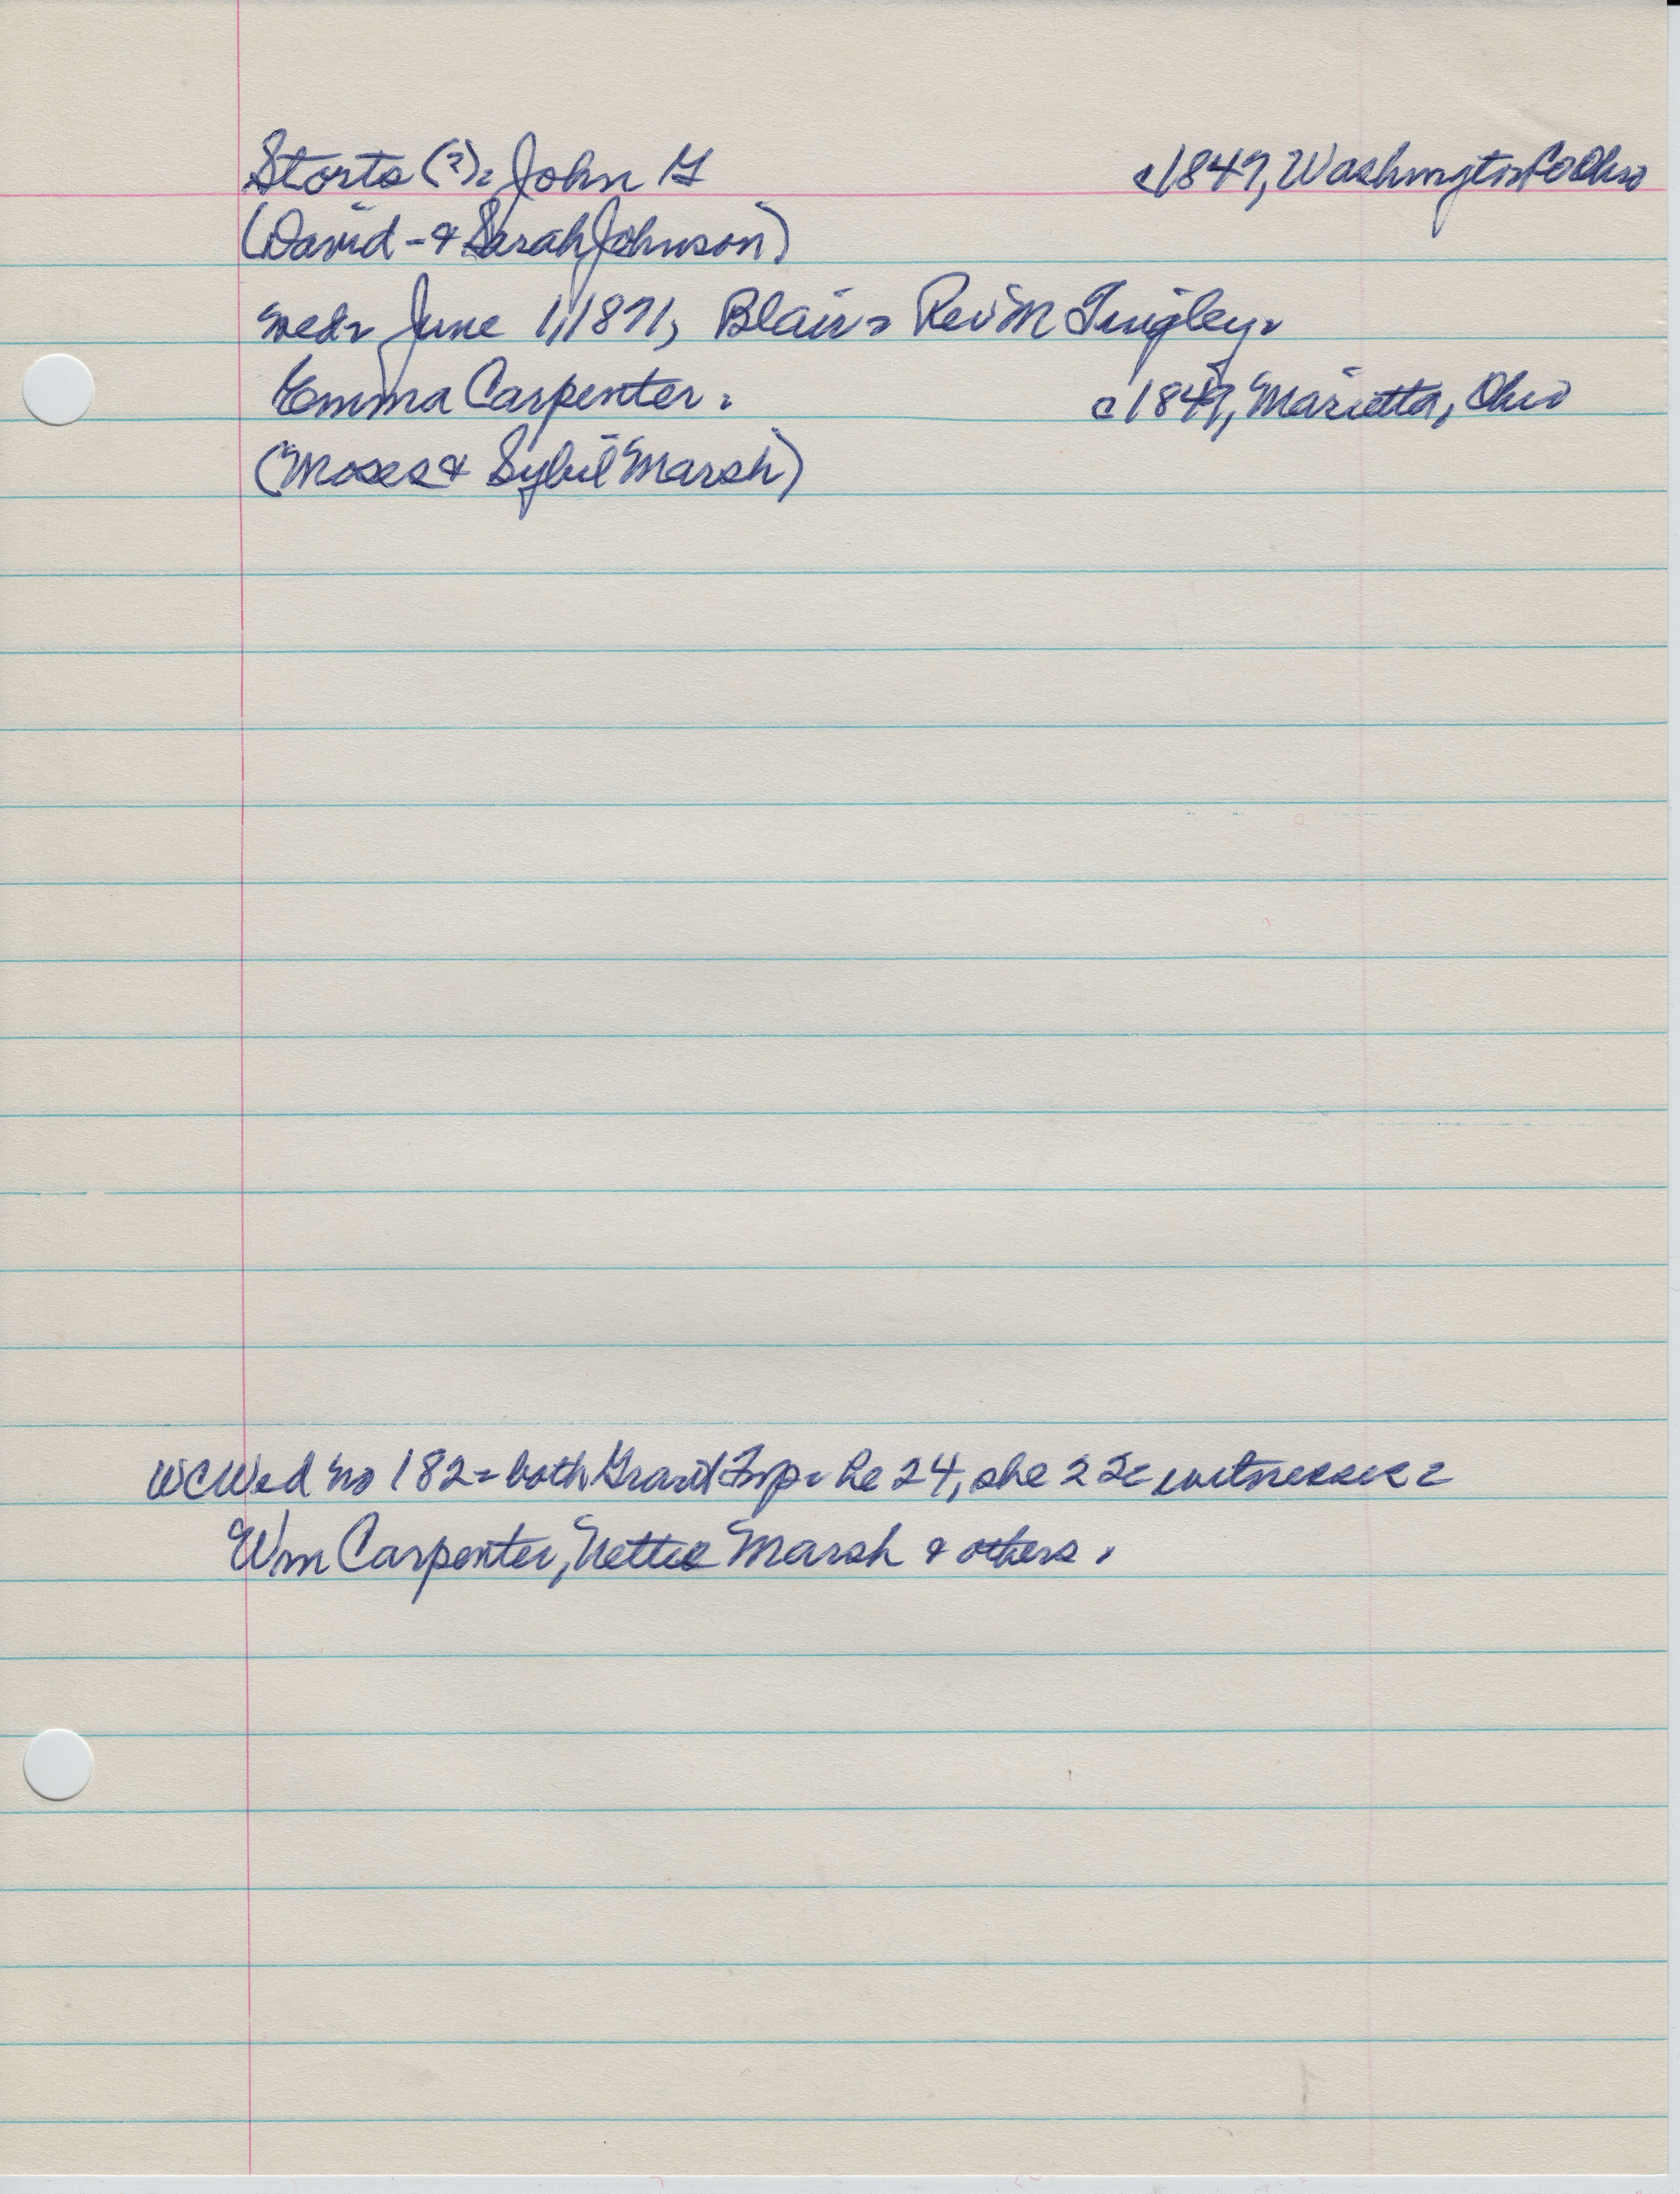 Storts (?): John G c1847, Washington Co Ohio
(David - & Sarah Johnson)
wed: June 1, 1871, Blair: Rev M Tingley.
Emma Carpenter. c1849, Marietta, Ohio
(Moses & Sybil Marsh)
WCWed No 182: both Grant Twp: he 24, she 22: witnesses:
Wm Carpenter, Nettie Marsh & others.